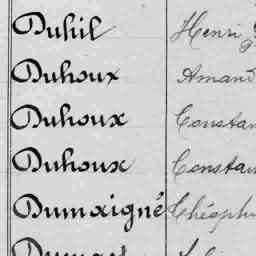 Duhil Henri
Duhoux Amand
Duhoux Constan
Duhoux Constan
Dumaigné Théoph